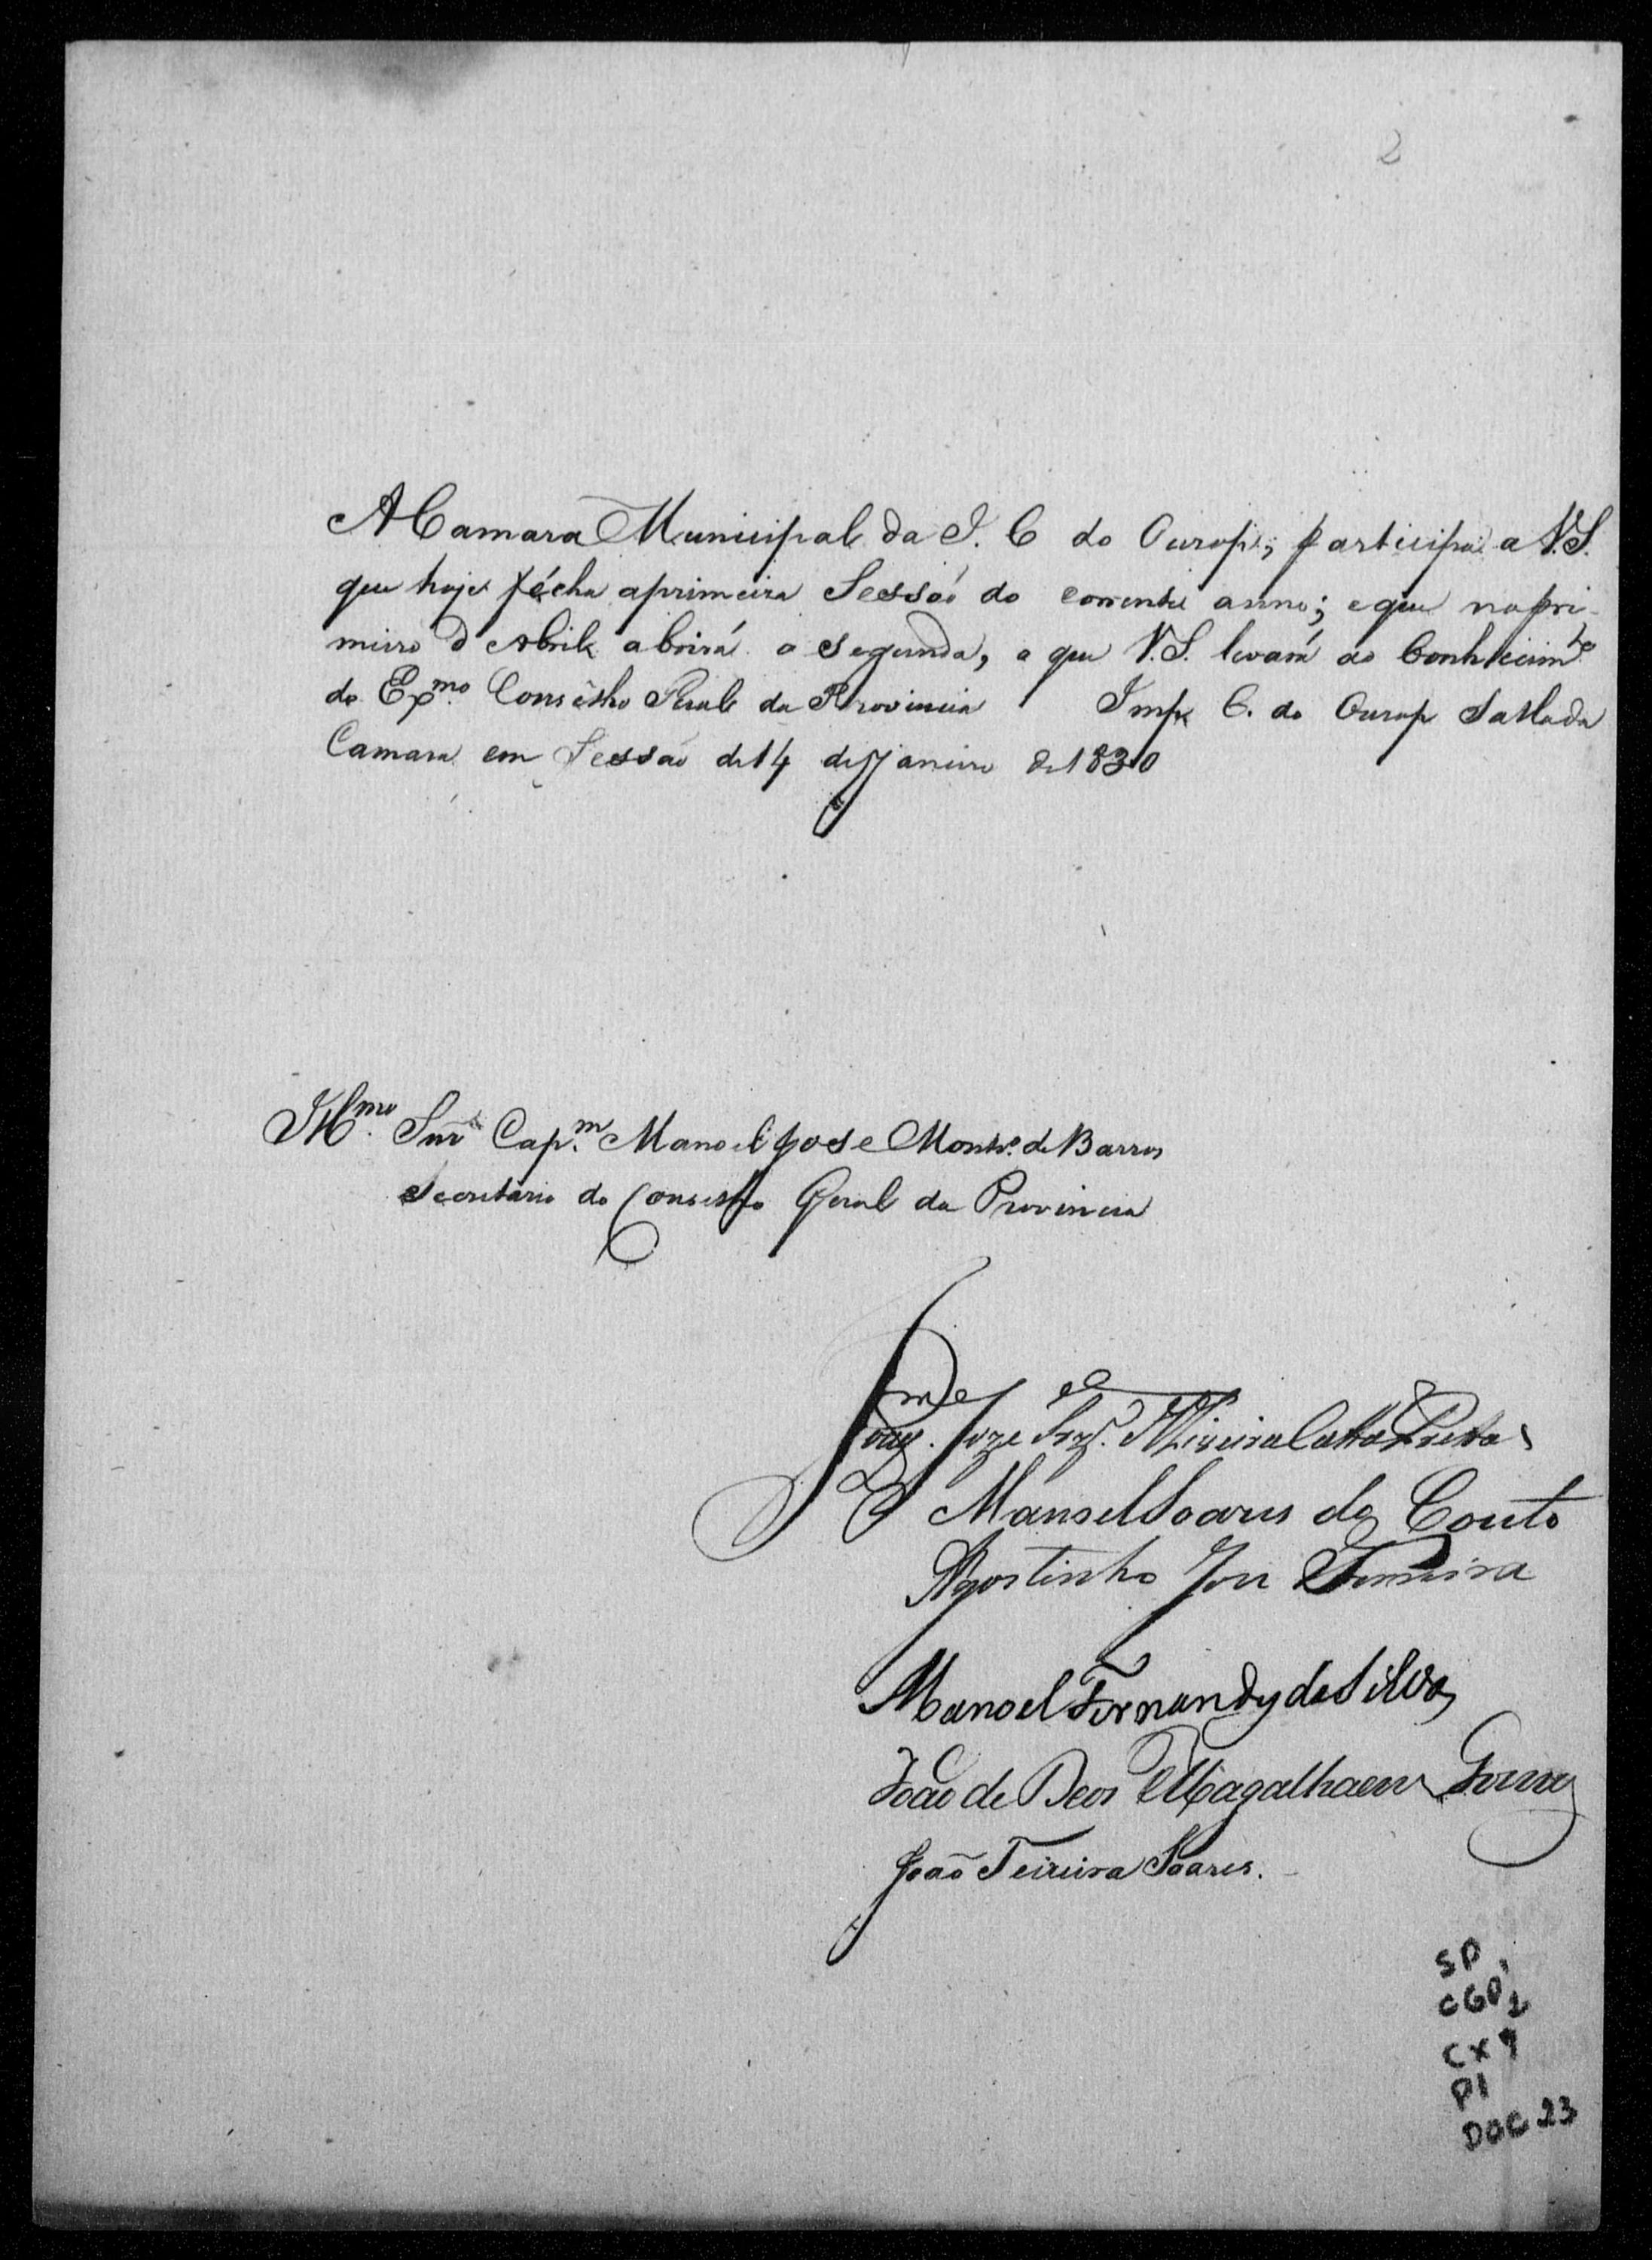 2
A Camara Municipal da I. C do Ourop., participa a V.S.
que hoje fécha aprimeira Sessaõ do corrente anno; eque nopri-
meiro d'Abril abrirá a segunda, o que V.S. levará ao Conhecim.to
do Ex.mo Conselho Geral da Provincia Imp. C. do Ourop Salla da
Camara em Sessaõ de 14 de Janeiro de 1830
Ill.mo Snr Cap.m Manoel Jose Montr.o de Barros
Secretario do Conselho Geral da Provincia
Joze Oliveira Catta Preta
Manoel Soares do Couto
Agostinho Joze Ferreira
Manoel Fernandes da Silva
João de Deos Magalhaens Gomes
Joaõ Teixeira Soares.
SP
CGP1
CX 9
P1
DOC 23